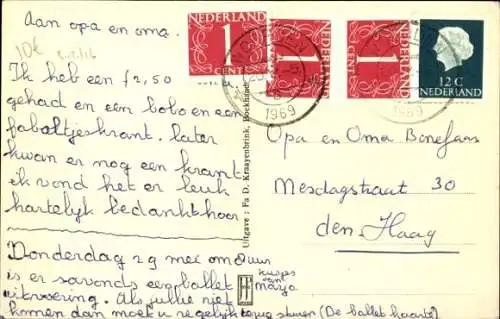 Aan opa en oma.
10€
Ik heb een f 2,50
gehad en een bobo en een
babbeltjeskrant. later
kwam er nog een krant
ik vond het er leuk
hartelijk bedankt hoor.
Donderdag 29 mei om uur
is er savonds een ballet
uitvoering. Als jullie niet
kusjes
van
marja
komen dan moet u regelijk terug sturen (De ballet kaart)
NEDERLAND
1
CENT
1
NEDERLAND
1
NEDERLAND
12 C
NEDERLAND
1969
1969
Uitgave : Fa D. Kraayenbrink, Hoekhand
Opa en Oma Bonefaas
Mesdagstraat 30
den Haag